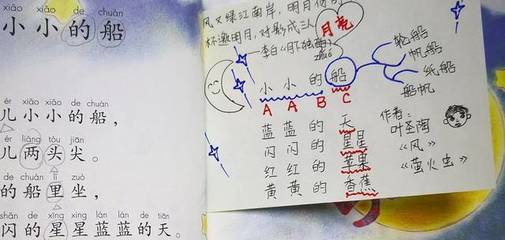 xiǎo xiǎo de chuán
小小的船
ér xiǎo xiǎo de chuán
儿小小的船，
ér liǎng tóu jiān
儿两头尖。
de chuán lǐ zuò
的船里坐
shǎn de xīng xing lán lán de tiān
闪的星星蓝蓝的天。
风又绿江南岸，明月何
杯邀明月，对影成三人
月亮
——李白《月下独酌》
小小的船
A A B C
轮船
帆船
纸船
船帆
蓝蓝的天
闪闪的星星
红红的苹果
黄黄的香蕉
作者：
叶圣陶
《风》
《萤火虫》